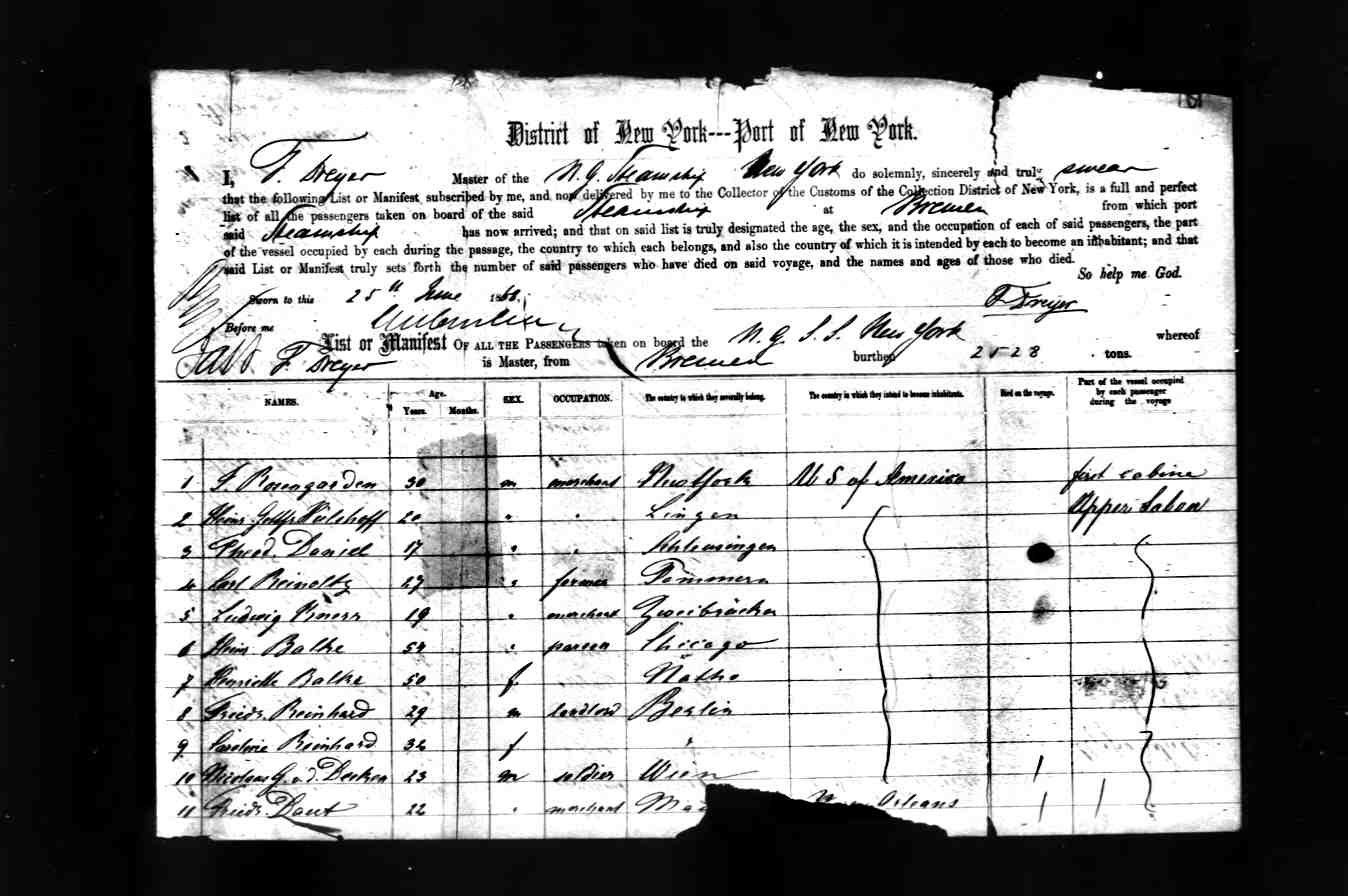 District of New York---Port of New York.
I, F. Dreyer Master of the N. G. Steamship New York do solemnly, sincerely and truly swear
that the following List or Manifest subscribed by me, and now delivered by me to the Collector of the Customs of the Collection District of New York, is a full and perfect
list of all the passengers taken on board of the said Steamship at Bremen from which port
said Steamship has now arrived; and that on said list is truly designated the age, the sex, and the occupation of each of said passengers, the part
of the vessel occupied by each during the passage, the country to which each belongs, and also the country of which it is intended by each to become an inhabitant; and that
said List or Manifest truly sets forth the number of said passengers who have died on said voyage, and the names and ages of those who died.
So help me God.
Sworn to this 25th June 186
F. Dreyer
Before me
List or Manifest OF ALL THE PASSENGERS taken on board the N. G. S. S. New York whereof
F. Dreyer is Master, from Bremen burthen 2528 tons.
NAMES. Age. Years. Months. SEX. OCCUPATION. The country to which they severally belong. The country in which they intend to become inhabitants. Died on the voyage. Part of the vessel occupied by each passenger during the voyage
1 F. Rosengarden 30 m merchant New York U S of America first cabine
2 20 " " Lingen Upper Saloon
3 Theod. Daniel 17 " " Schleusingen
4 Carl Reinoltz 27 " farmer Pommern
5 Ludwig 19 " merchant Zweibrücken
6 Heinr. Balke 54 " parson Chicago
7 Henriette Balke 50 f. "
8 Friedr. Reinhard 29 m landlord Berlin
9 Caroline Reinhard 32 f "
10 Nicolaus G. v. d. Decken 23 m soldier Wien
11 Friedr. 22 " merchant Orleans